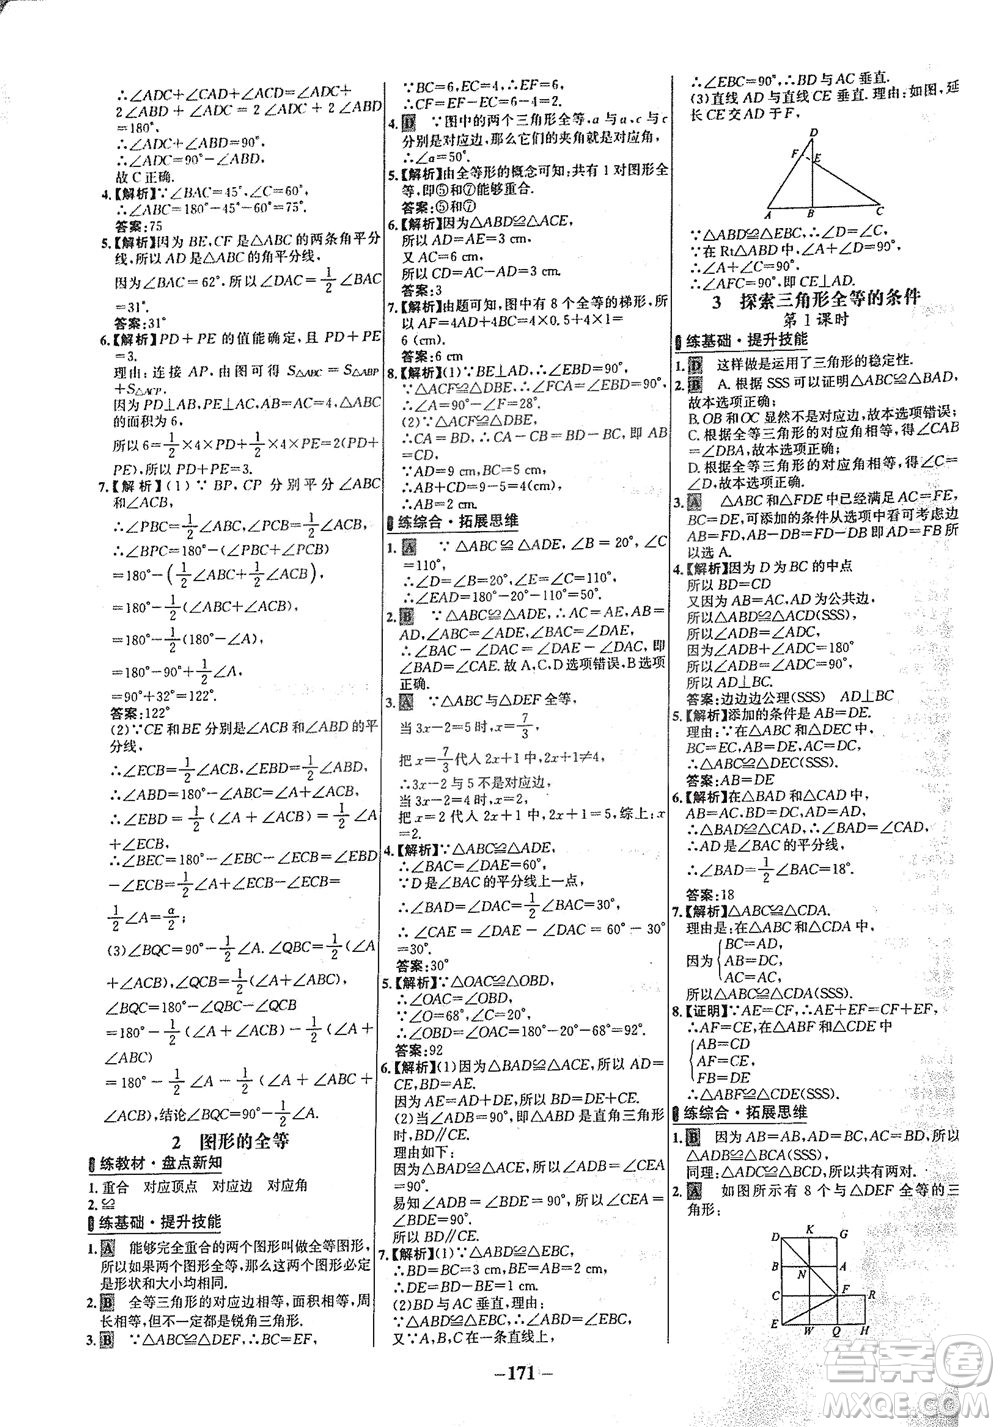 ∴∠ADC+∠CAD+∠ADC=∠ADC+
2∠ABD+∠ADC=2∠ADC+2∠ABD
=180°,
∴∠ADC+∠ABD=90°,
∴∠ADC=90°-∠ABD,
故 C 正确.
4.【解析】∵∠BAC=45°,∠C=60°,
∴∠ABC=180°-45°-60°=75°.
答案:75
5.【解析】因为 BE,CF 是△ABC 的两条角平分
线,所以 AD 是△ABC 的角平分线,
因为∠BAC=62°,所以∠DAC=1/2∠BAC
=31°.
答案:31°
6.【解析】PD+PE 的值能确定,PD+PE
=3.
理由:连接 AP,由图可得 S△ABC=S△ABP
+S△APC,
因为 PD⊥AB,PE⊥AC,AB=AC=4,△ABC
的面积为 6,
所以 6=1/2×4×PD+1/2×4×PE=2(PD+
PE),所以 PD+PE=3.
7.【解析】(1)∵BP,CP 分别平分∠ABC
和∠ACB,
∴∠PBC=1/2∠ABC,∠PCB=1/2∠ACB,
∴∠BPC=180°-(∠PBC+∠PCB)
=180°-(1/2∠ABC+1/2∠ACB)
=180°-1/2(∠ABC+∠ACB),
=180°-1/2(180°-∠A),
=180°-90°+1/2∠A,
=90°+32°=122°.
答案:122°
(2)∵CE 和 BE 分别是∠ACB 和∠ABD 的平
分线,
∴∠ECB=1/2∠ACB,∠EBD=1/2∠ABD,
∴∠ABD=180°-∠ABC=∠A+∠ACB,
∴∠EBD=1/2∠ABD=1/2(∠A+∠ACB)=1/2∠A
+∠ECB,
∴∠BEC=180°-∠EBC-∠ECB=∠EBD
-∠ECB=1/2∠A+∠ECB-∠ECB=
1/2∠A=α/2;
(3)∠BQC=90°-1/2∠A.∠QBC=1/2(∠A
+∠ACB),∠QCB=1/2(∠A+∠ABC),
∠BQC=180°-∠QBC-∠QCB
=180°-1/2(∠A+∠ACB)-1/2(∠A+
∠ABC)
=180°-1/2∠A-1/2(∠A+∠ABC+
∠ACB),结论∠BQC=90°-1/2∠A.
2 图形的全等
练教材·盘点新知
1.重合 对应顶点 对应边 对应角
2.≌
练基础·提升技能
1.A 能够完全重合的两个图形叫做全等图形,
所以如果两个图形全等,那么这两个图形必定
是形状和大小均相同.
2.B 全等三角形的对应边相等,面积相等,周
长相等,但不一定都是锐角三角形.
3.B ∵△ABC≌△DEF,∴BC=EF,
∵BC=6,EC=4,∴EF=6,
∴CF=EF-EC=6-4=2.
4.D ∵图中的两个三角形全等,a 与 a,c 与 c
分别是对应边,那么它们的夹角就是对应角,
∴∠α=50°.
5.【解析】由全等形的概念可知:共有 1 对图形全
等,即⑤和⑦能够重合.
答案:⑤和⑦
6.【解析】因为△ABD≌△ACE,
所以 AD=AE=3 cm,
又 AC=6 cm,
所以 CD=AC-AD=3 cm.
答案:3
7.【解析】由题可知,图中有 8 个全等的梯形,所
以 AF=4AD+4BC=4×0.5+4×1=
6(cm).
答案:6 cm
8.【解析】(1)∵BE⊥AD,∴∠EBD=90°.
∵△ACF≌△DBE,∴∠FCA=∠EBD=90°.
∴∠A=90°-∠F=28°.
(2)∵△ACF≌△DBE,
∴CA=BD,∴CA-CB=BD-CB,即 AB=
CD.
∵AD=9 cm,BC=5 cm,
∴AB+CD=9-5=4(cm),
∴AB=2 cm.
练综合·拓展思维
1.A ∵△ABC≌△ADE,∠B=20°,∠C
=110°,
∴∠D=∠B=20°,∠E=∠C=110°,
∴∠EAD=180°-110°-20°=50°.
2.B ∵△ABC≌△ADE,∴AC=AE,AB=
AD,∠BAC=∠DAE,
∴∠BAC-∠DAC=∠DAE-∠DAC,即
∠BAD=∠CAE.故 A,C,D 选项错误,B 选项
正确.
3.A ∵△ABC 与△DEF 全等,
当 3x-2=5 时,x=7/3,
把 x=7/3代入 2x+1 中,2x+1≠4,
∴3x-2 与 5 不是对应边,
当 3x-2=4 时,x=2,
把 x=2 代入 2x+1 中,2x+1=5,综上:x
=2.
4.【解析】∵△ABC≌△ADE,
∴∠BAC=∠DAE=60°,
∵D 是∠BAC 的平分线上一点,
∴∠BAD=∠DAC=1/2∠BAC=30°,
∴∠CAE=∠DAE-∠DAC=60°-30°
=30°.
答案:30°
5.【解析】∵△OAC≌△OBD,
∴∠OAC=∠OBD,
∵∠O=68°,∠C=20°,
∴∠OBD=∠OAC=180°-20°-68°=92°.
答案:92
6.【解析】(1)因为△BAD≌△ACE,所以 AD=
CE,BD=AE.
所以 BD=AE=AD+DE=CE+DE.
(2)当∠ADB=90°,即△ABD 是直角三角形
时,BD∥CE.
理由如下:
因为△BAD≌△ACE,所以∠ADB=∠CEA
=90°.
易知∠ADB=∠BDE=90°,所以∠CEA=
∠BDE.
所以 BD∥CE.
7.【解析】(1)∵△ABD≌△EBC,
∴BD=BC=3 cm,BE=AB=2 cm,
∴DE=BD-BE=1(cm).
(2)BD 与 AC 垂直,理由:
∵△ABD≌△EBC,∴∠ABD=∠EBC,
又∵A,B,C 在一条直线上,
∴∠EBC=90°,∴BD 与 AC 垂直.
(3)直线 AD 与直线 CE 垂直.理由:如图,延
长 CE 交 AD 于 F,
D
F
E
A
B
C
∵△ABD≌△EBC,∴∠D=∠C,
∵在 Rt△ABD 中,∠A+∠D=90°,
∴∠A+∠C=90°,
∴∠AFC=90°,即 CE⊥AD.
3 探索三角形全等的条件
第 1 课时
练基础·提升技能
1.D 这样做是运用了三角形的稳定性.
2.B A.根据 SSS 可以证明△ABC≌△BAD,
故本选项正确;
B.OB 和 OC 显然不是对应边,故本选项错误;
C.根据全等三角形的对应角相等,得∠CAB
=∠DBA,故本选项正确;
D.根据全等三角形的对应角相等,得∠C=
∠D,故本选项正确.
3.A △ABC 和△FDE 中已经满足 AC=FE,
BC=DE,可添加的条件从选项中看可考虑由
AB=FD,AB-DB=FD-DB 即 AD=FB 所
以选 A.
4.【解析】因为 D 为 BC 的中点
所以 BD=CD
又因为 AB=AC,AD 为公共边,
所以△ABD≌△ADC(SSS),
所以∠ADB=∠ADC,
因为∠ADB+∠ADC=180°
所以∠ADB=90°,
所以 AD⊥BC.
答案:边边边公理(SSS) AD⊥BC
5.【解析】添加的条件是 AB=DE.
理由:∵在△ABC 与△DEC 中,AB=DE,
BC=EC,AC=DC,
∴△ABC≌△DEC(SSS).
答案:AB=DE
6.【解析】在△BAD 和△CAD 中,
AB=AC,BD=DC,AD=AD,
∴△BAD≌△CAD,∴∠BAD=∠CAD,
∴AD 是∠BAC 的平分线,
∴∠BAD=1/2∠BAC=18°.
答案:18
7.【解析】△ABC≌△CDA.
理由是:在△ABC 与△CDA 中,
因为{BC=AD,
AB=CD,
AC=CA,
所以△ABC≌△CDA(SSS).
8.【证明】∵AE=CF,∴AE+EF=CF+EF,
∴AF=CE,在△ABF 和△CDE 中
{AB=CD
AF=CE,
FB=DE
∴△ABF≌△CDE(SSS).
练综合·拓展思维
1.B 因为 AB=AB,AD=BC,AC=BD,所以
△ADB≌△BCA(SSS).
同理:△ADC≌△BCD,所以共有两对.
2.A 如图所示有 8 个与△DEF 全等的三
角形:
D
K
G
B
N
A
C
F
R
E
W
Q
H
-171-
答案圈
MXQE.COM